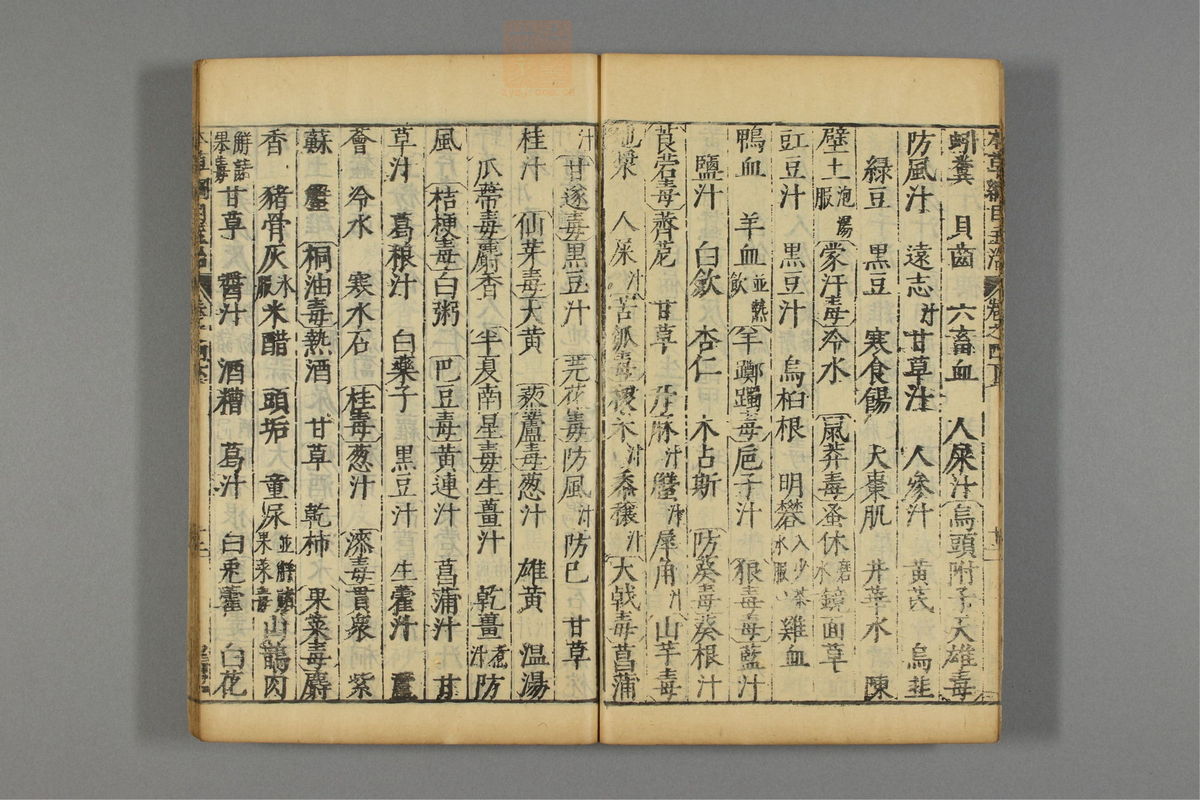 蚓糞 貝齒 六畜血 人屎汁 烏頭附子天雄毒
防風汁 遠志汁 甘草汁 人參汁 黃芪 烏韭
綠豆 黑豆 寒食餳 大棗肌 井華水 陳
壁土泡湯服 蒙汗毒冷水 鼠莽毒蚤休磨水 鏡面草
豇豆汁 黑豆汁 烏桕根 明礬入少茶水服 雞血
鴨血 羊血並熱飲 羊躑躅毒巵子汁 狼毒毒藍汁
鹽汁 白歛 杏仁 木占斯 防葵毒葵根汁
莨菪毒薺苨 甘草 升麻汁 蟹汁 犀角汁 山芋毒
地漿 人屎汁 苦瓠毒稷米汁 黍穰汁 大戟毒菖蒲
汁 甘遂毒黑豆汁 芫花毒防風汁 防已 甘草
桂汁 仙茅毒大黃 藜蘆毒葱汁 雄黃 温湯
瓜蒂毒麝香 半夏南星毒生薑汁 乾薑煮汁 防
風 桔梗毒白粥 巴豆毒黃連汁 菖蒲汁 甘
草汁 葛根汁 白藥子 黑豆汁 生藿汁
薈 冷水 寒水石 桂毒葱汁 漆毒貫衆 紫
蘇 蟹 桐油毒熱酒 甘草 乾柿 果菜毒麝
香 豬骨灰水服 米醋 頭垢 童尿並解諸果菜毒 山鵲肉
解諸果毒 甘草 醬汁 酒糟 葛汁 白兎藿 白花